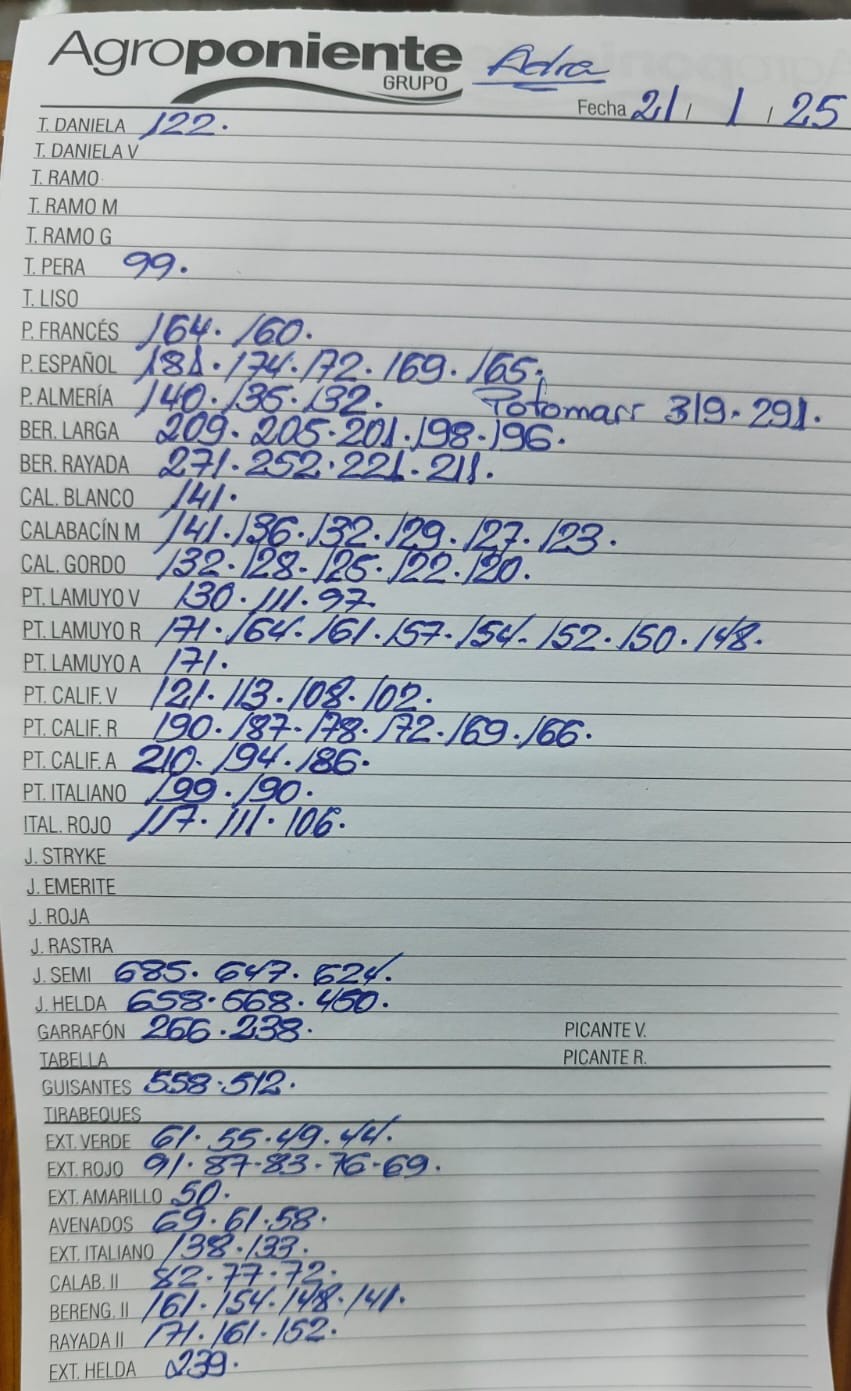 Agroponiente
GRUPO
Adra
Fecha 21 / 1 / 25
T. DANIELA 122.
T. DANIELA V
T. RAMO
T. RAMO M
T. RAMO G
T. PERA 99.
T. LISO
P. FRANCÉS 164. 160.
P. ESPAÑOL 181. 174. 172. 169. 165.
P. ALMERÍA 140. 135. 132. Potomarr 319. 291.
BER. LARGA 209. 205. 201. 198. 196.
BER. RAYADA 271. 252. 221. 211.
CAL. BLANCO 141.
CALABACÍN M 141. 136. 132. 129. 127. 123.
CAL. GORDO 132. 128. 125. 122. 120.
PT. LAMUYO V 130. 111. 97.
PT. LAMUYO R 171. 164. 161. 157. 154. 152. 150. 148.
PT. LAMUYO A 171.
PT. CALIF. V 121. 113. 108. 102.
PT. CALIF. R 190. 187. 178. 172. 169. 166.
PT. CALIF. A 210. 194. 186.
PT. ITALIANO 199. 190.
ITAL. ROJO 117. 111. 106.
J. STRYKE
J. EMERITE
J. ROJA
J. RASTRA
J. SEMI 685. 647. 624.
J. HELDA 658. 568. 450.
GARRAFÓN 266. 238. PICANTE V.
TABELLA PICANTE R.
GUISANTES 558. 512.
TIRABEQUES
EXT. VERDE 61. 55. 49. 44.
EXT. ROJO 91. 87. 83. 76. 69.
EXT. AMARILLO 50.
AVENADOS 69. 61. 58.
EXT. ITALIANO 138. 133.
CALAB. II 82. 77. 72.
BERENG. II 161. 154. 148. 141.
RAYADA II 171. 161. 152.
EXT. HELDA 239.